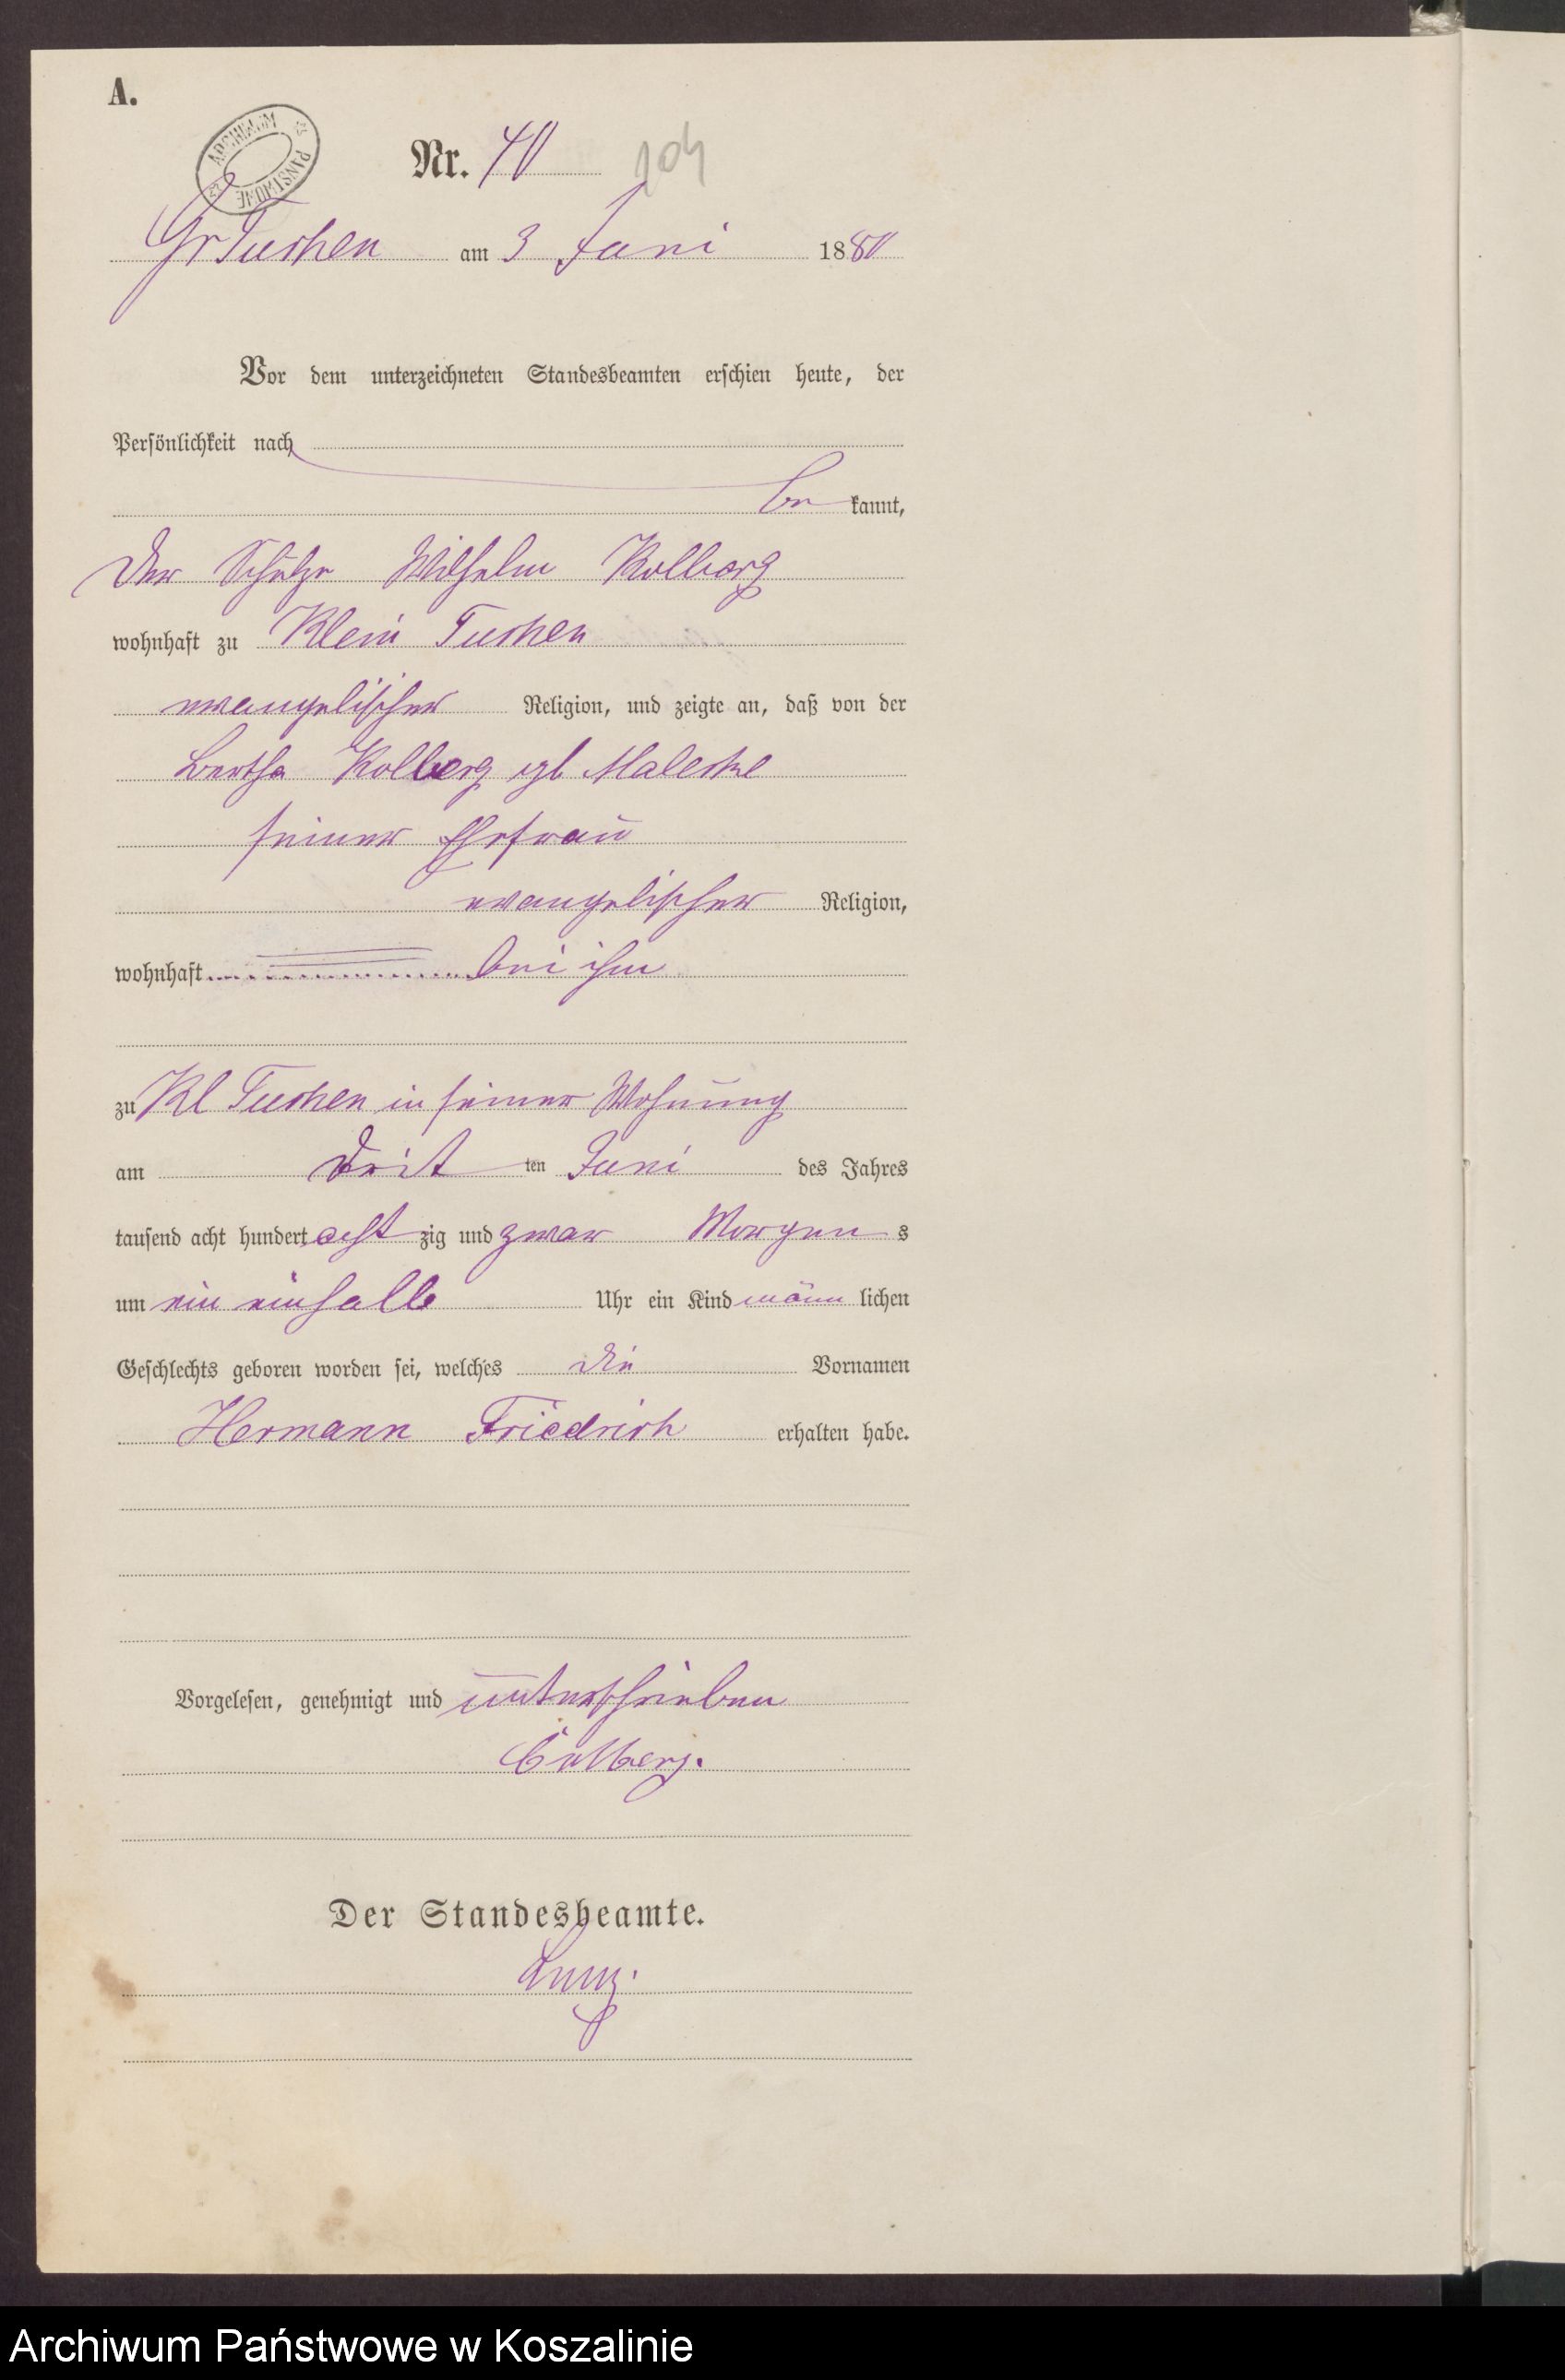 A.
ARCHIWUM PAŃSTWOWE
Nr. 40 104
Gr Tuchen am 3 Juni 1880
Vor dem unterzeichneten Standesbeamten erschien heute, der
Persönlichkeit nach
be kannt,
Der Schulze Wilhelm Kolberg
wohnhaft zu Klein Tuchen
evangelischer Religion, und zeigte an, daß von der
Bertha Kolberg gb
seiner Ehefrau
evangelischer Religion,
wohnhaft bei ihm
zu Kl Tuchen in seiner Wohnung
am Drit ten Juni des Jahres
tausend acht hundert acht zig und zwar Morgen s
um ein einhalb Uhr ein Kind männ lichen
Geschlechts geboren worden sei, welches die Vornamen
Hermann Friedrich erhalten habe.
Vorgelesen, genehmigt und unterschrieben
Colberg.
Der Standesbeamte.
Archiwum Państwowe w Koszalinie